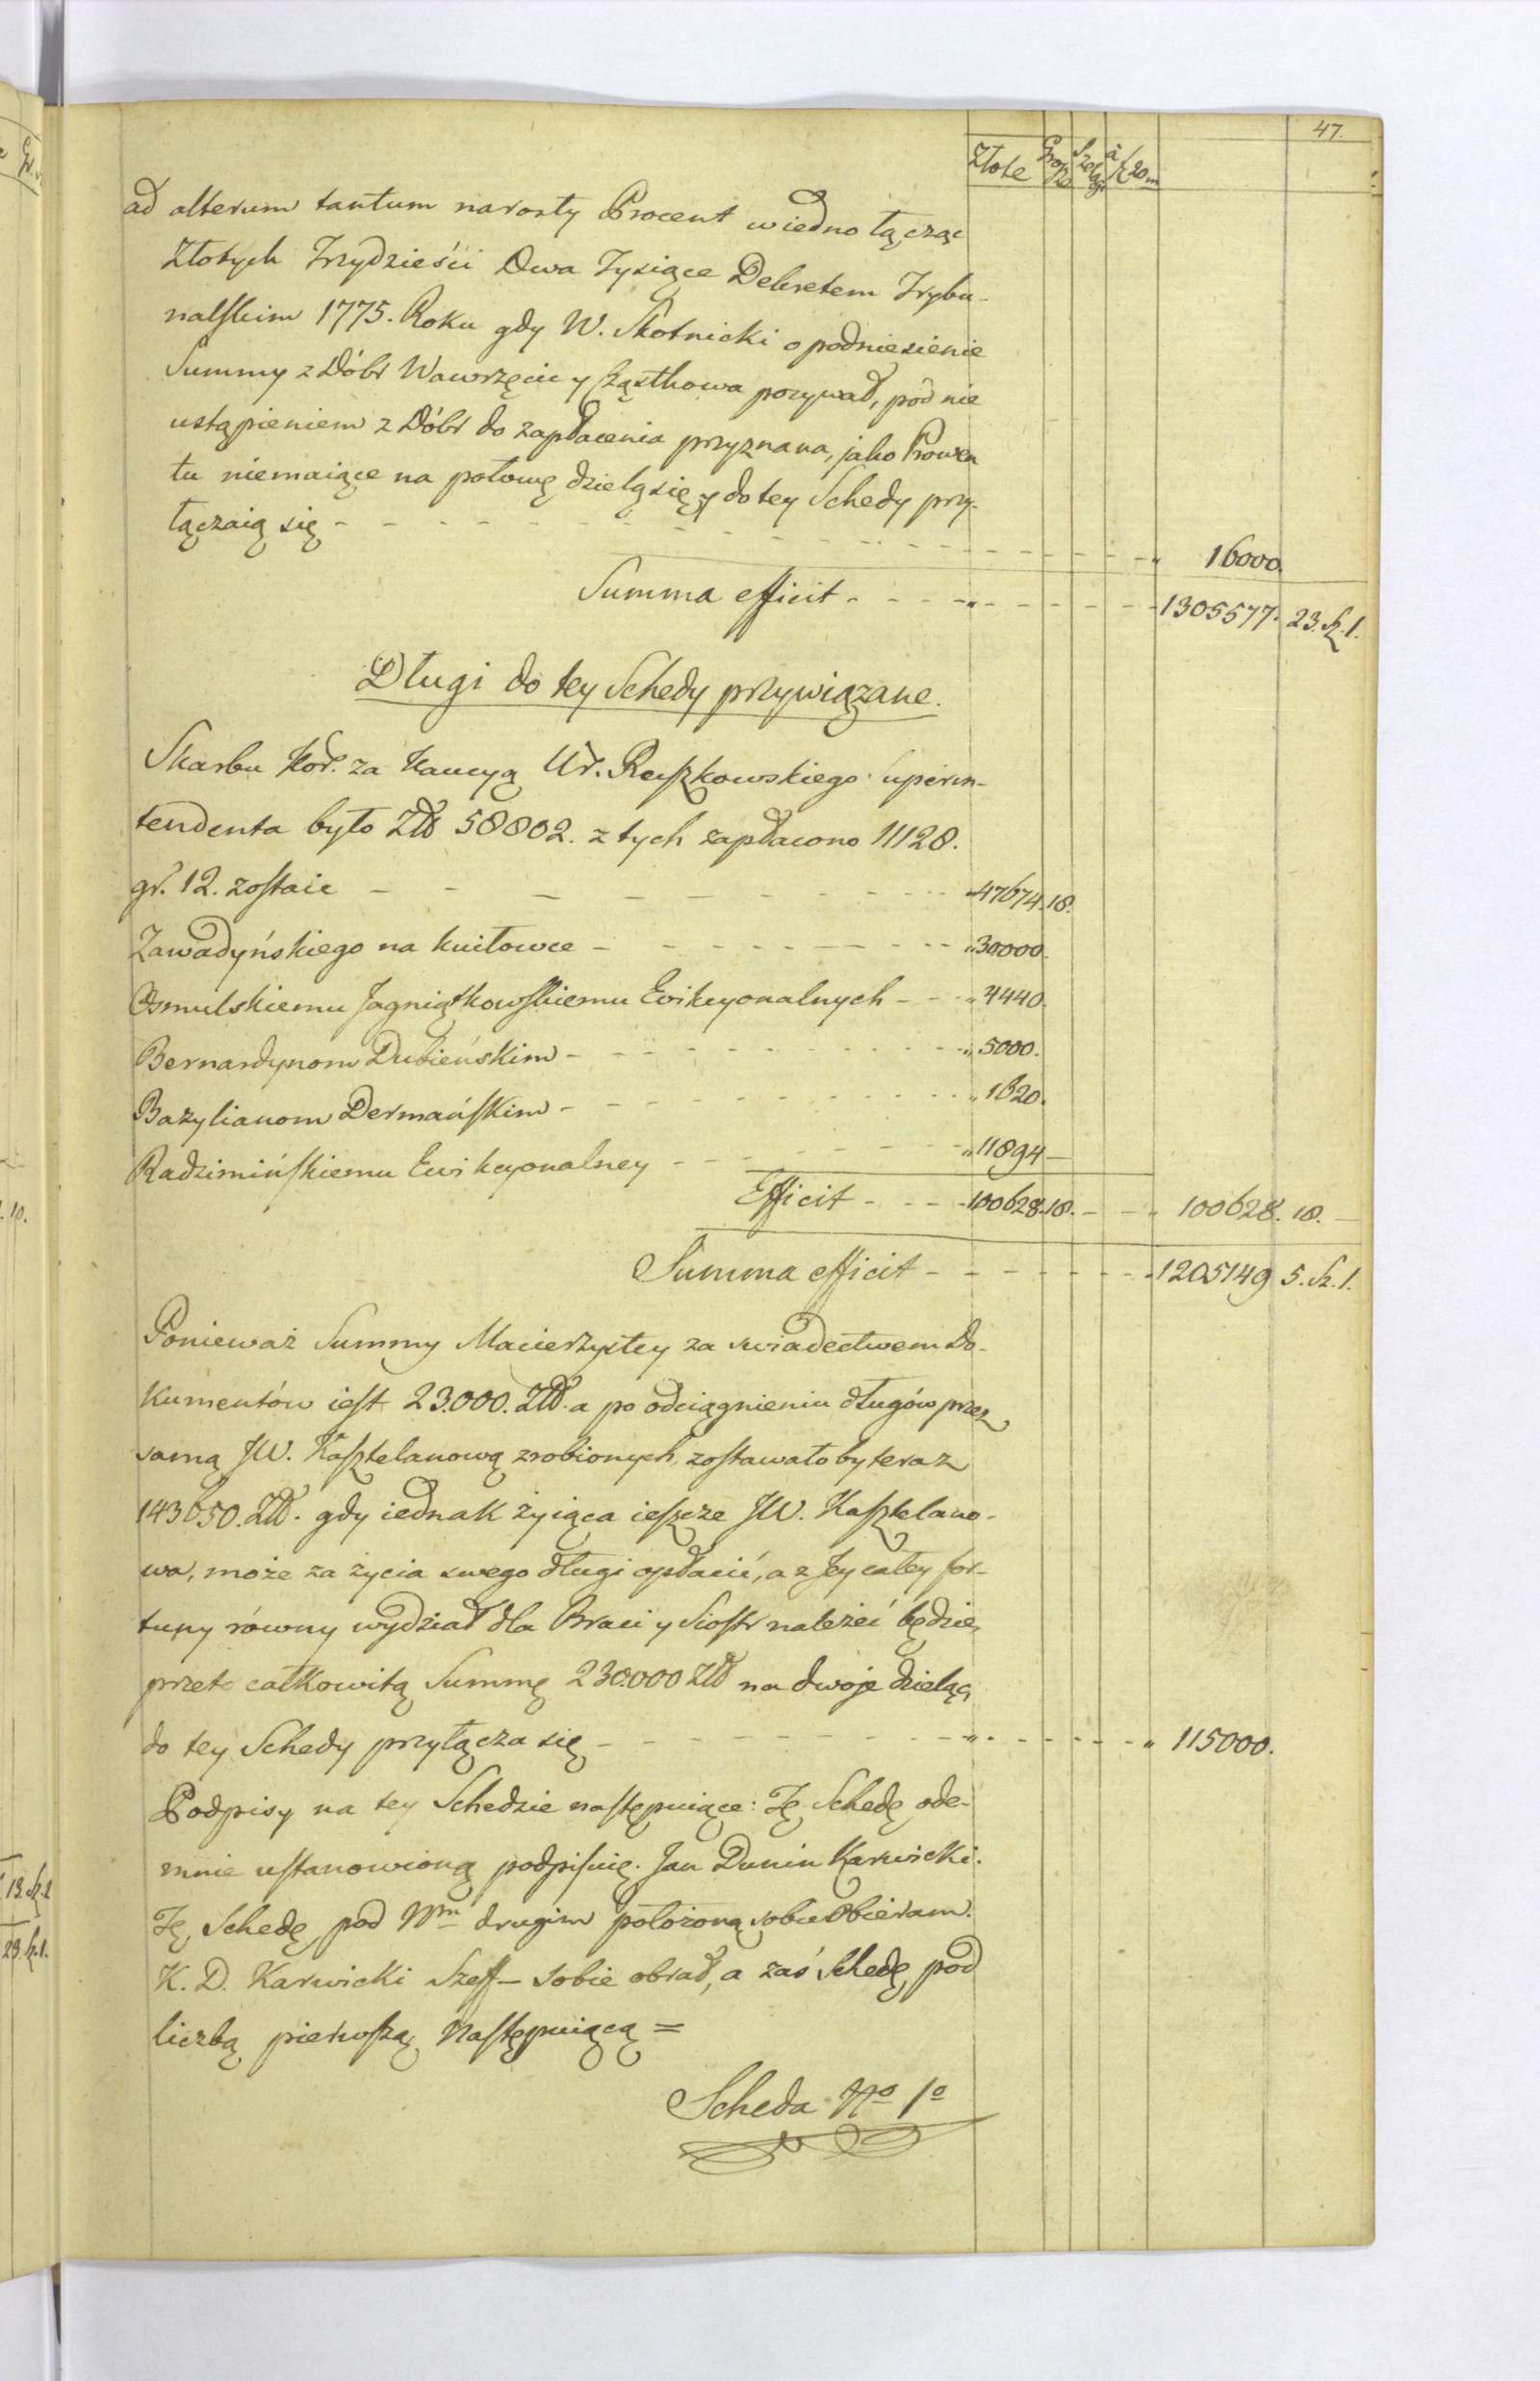 47.
Złote Grosze Szelągi à f 20m
ad alterum tantum narosły Procent wiedno łącząc
Złotych Trzydzieści Dwa Tysiące Dekretem Trybu-
nalskim 1775. Roku gdy W. Skotnicki o podniesienie
Summy z Dóbr Wawrzęcic y Cząstkowa pozywał, pod nie
ustąpieniem z Dóbr do zapłacenia przyznana, jako Prowen
tu niemaiące na połowę dzielą się y do tey Schedy przy-
łączaią się - - - - 16000.
Summa efficit - - - - 1305577. 23. Sz. 1.
Długi do tey Schedy przywiązane.
Skarbu Kor. za Kaucyą Ur. Ruszkowskiego Superin-
tendenta było Złł 58802. z tych zapłacono 11128.
gr. 12. zostaie - - - - 47674. 18.
Zawadyńskiego na kuiłowce - - - - 30000.
Osmulskiemu Jagniątkowskiemu Ewikcyonalnych - - - 4440.
Bernardynom Dubieńskim - - - - 5000.
Bazylianom Dermańskim - - - - 1620.
Radzimińskiemu Ewikcyonalney - - - - 11894 —
Efficit - - - 100628. 18. - - 100628. 18. —
Summa efficit - - - - 1205149 5. Sz. 1.
Ponieważ Summy Macierzystey za swiadectwem Do-
kumentów iest 23.000. Złł. a po odciągnieniu długów przez
samą JW. Kasztelanową zrobionych, zostawało by teraz
143650. Złł. gdy iednak żyiąca ieszcze JW. Kasztelano-
wa, może za życia swego długi opłacić, a z Jey całey for-
tuny równy wydział dla Braci y Siostr należeć będzie,
przeto całkowitą Summę 230.000 Złł na dwoje dzieląc,
do tey Schedy przyłącza się - - - - 115000.
Podpisy na tey Schedzie następuiące: Tę Schedę ode-
mnie ustanowioną podpisuię. Jan Dunin Karwicki.
Tę Schedę pod Nrm drugim położoną sobie Obieram.
K. D. Karwicki Szeff — sobie obrał, a zaś Schedę pod
liczbą pierwszą Następuiącą =
Scheda No 1o